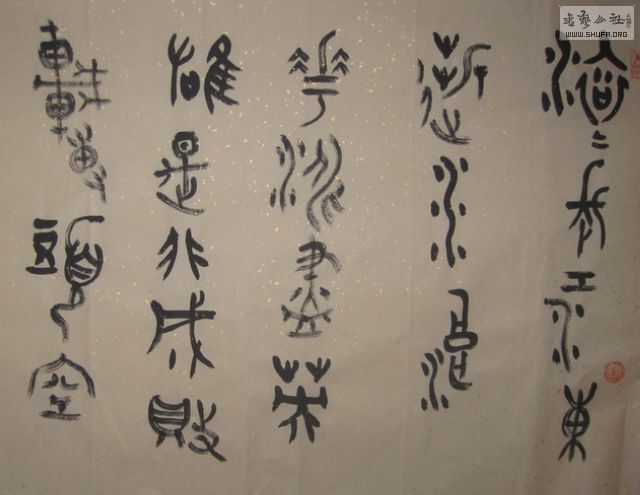 滚〻长江东
逝水浪
花淘尽英
雄是非成败
转头空
書藝公社
WWW.SHUFA.ORG